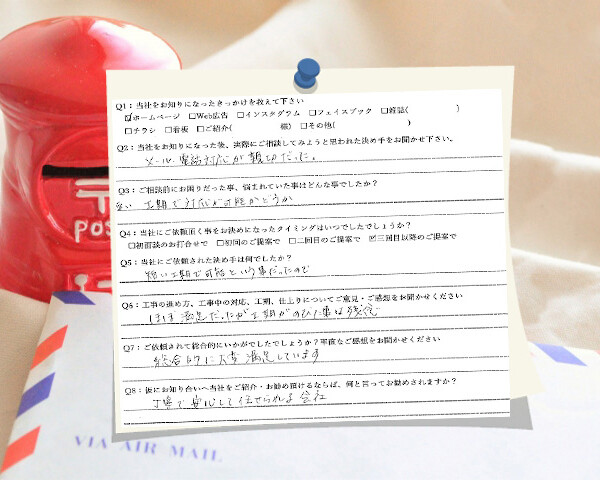 Q1:当社をお知りになったきっかけを教えて下さい
☑ホームページ □Web広告 □インスタグラム □フェイスブック □雑誌( )
□チラシ □看板 □ご紹介( 様) □その他( )
Q2:当社をお知りになった後、実際にご相談してみようと思われた決め手をお聞かせ下さい。
メール、電話対応が親切だった。
Q3:ご相談前にお困りだった事、悩まれていた事はどんな事でしたか?
短い工期で対応が可能かどうか
Q4:当社にご依頼頂く事をお決めになったタイミングはいつでしたでしょうか?
□初面談のお打合せで □初回のご提案で □二回目のご提案で ☑三回目以降のご提案で
Q5:当社にご依頼された決め手は何でしたか?
短い工期で可能という事だったので
Q6:工事の進め方、工事中の対応、工期、仕上りについてご意見・ご感想をお聞かせください
ほぼ満足だったが工期がのびた事は残念
Q7:ご依頼されて総合的にいかがでしたでしょうか?率直なご感想をお聞かせください
総合的に大変満足しています
Q8:仮にお知り合いへ当社をご紹介・お勧め頂けるならば、何と言ってお勧めされますか?
丁寧で安心して任せられる会社
POS
VIA AIR MAIL